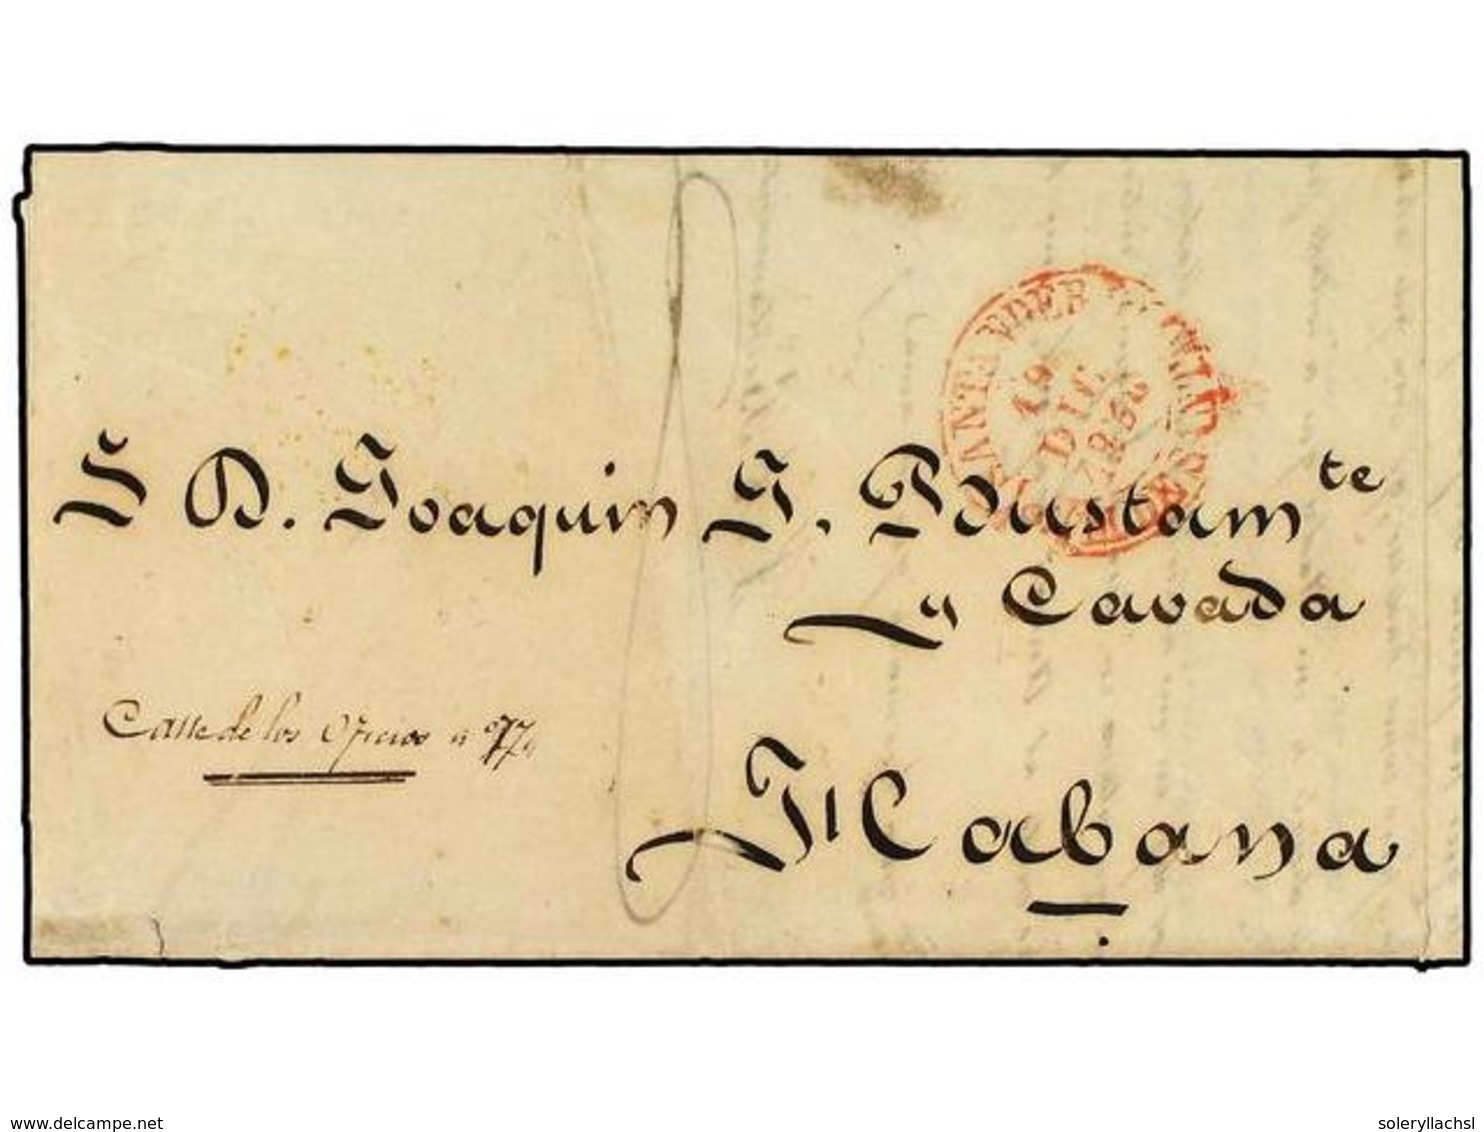 S D. Joaquin G. Bustam.te
y Cavada
Calle de los Oficios nº 77
Habana
19
DIC.
the-best-of.net
soleryllachsl